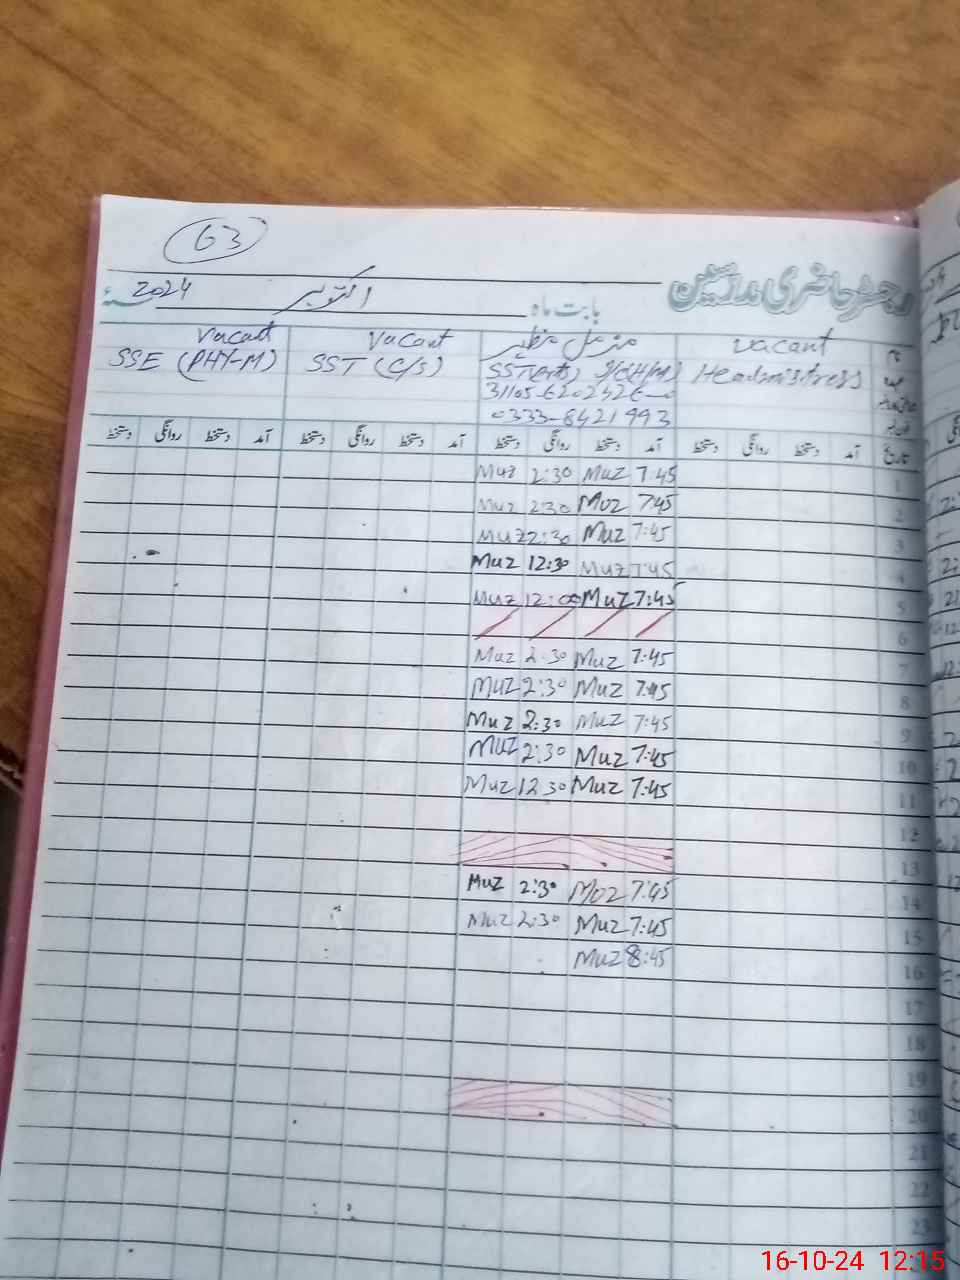 63
رجسٹر حاضری مدرسین
بابت ماہ اکتوبر 2024ء
نام vacant مزمل مظہر Vacant Vacant
عہدہ Headmistress SST(Arts) SST (C/S) SSE (PHY-M)
0333-8421993
تاریخ آمد دستخط روانگی دستخط آمد دستخط روانگی دستخط آمد دستخط روانگی دستخط آمد دستخط روانگی دستخط
Muz 2:30 Muz 7:45 1
Muz 2:30 Muz 7:45 2
Muz 2:30 Muz 7:45 3
Muz 12:30 Muz 7:45 4
Muz 12:00 Muz 7:45 5
6
Muz 2:30 Muz 7:45 7
Muz 2:30 Muz 7:45 8
Muz 2:30 Muz 7:45 9
Muz 2:30 Muz 7:45 10
Muz 12:30 Muz 7:45 11
12
13
Muz 2:30 Muz 7:45 14
Muz 2:30 Muz 7:45 15
Muz 8:45 16
17
18
19
20
21
22
23
16-10-24 12:15